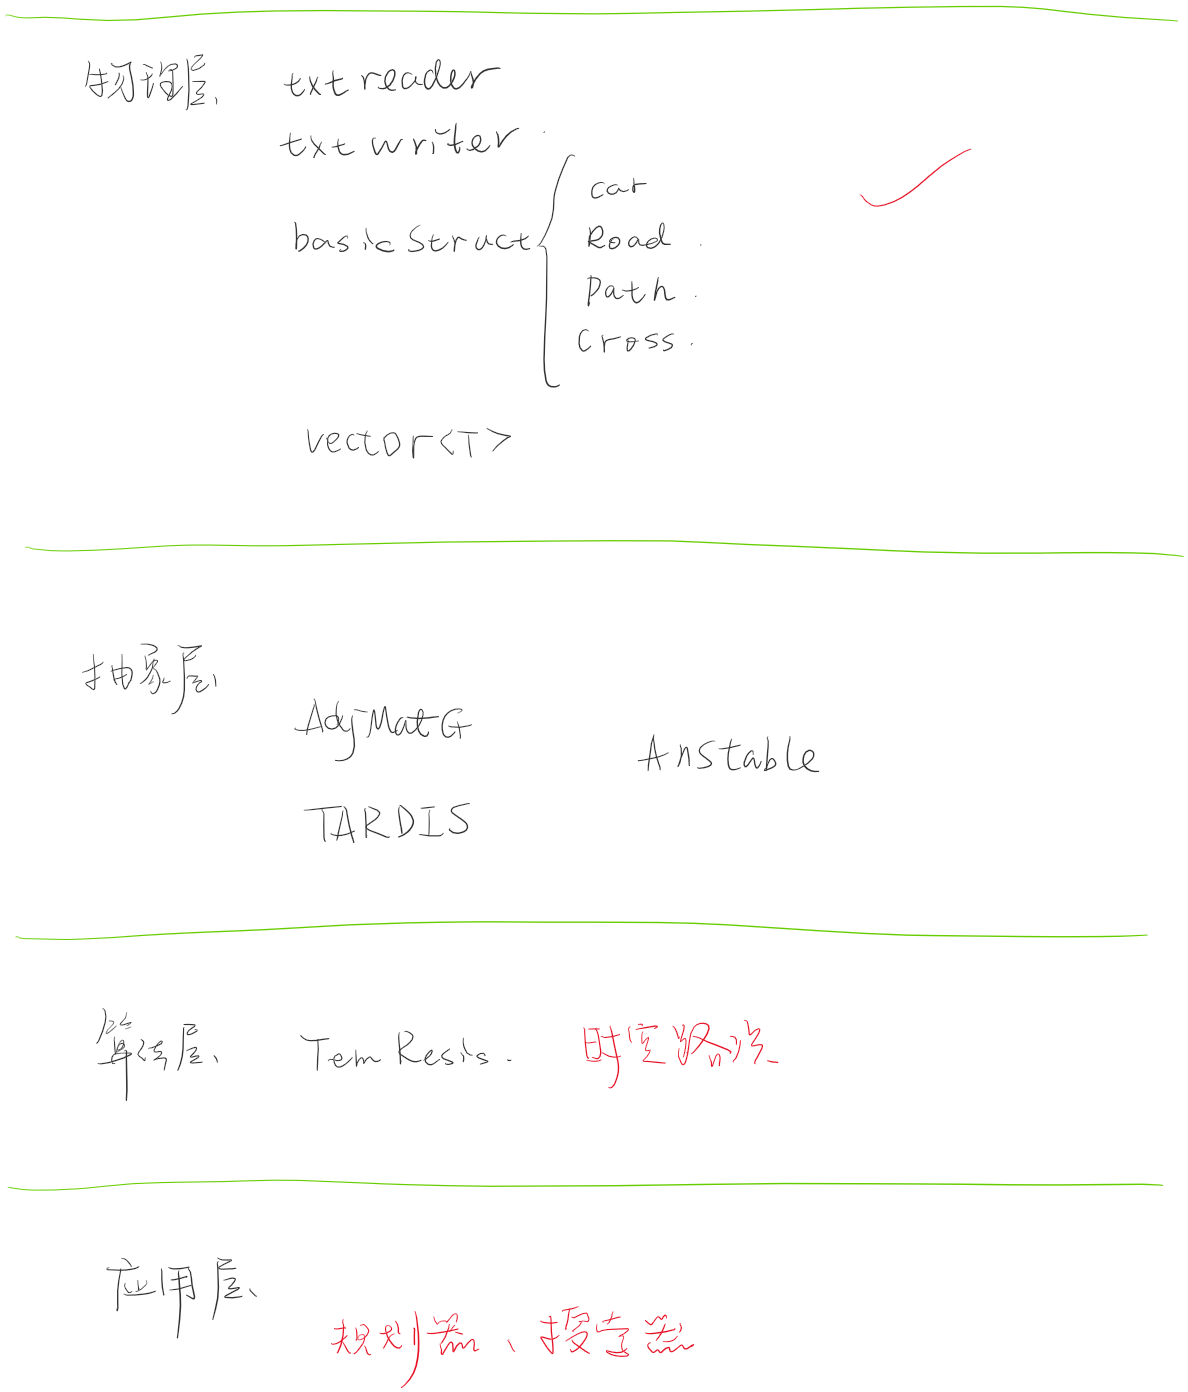 物理层、 txt reader
txt writer
basic Struct
car
Road
Path
Cross
vector<T>
抽象层、
AdjMatG
Anstable
TARDIS
算法层、 Tem Resis. 时空路
应用层、
规划器、